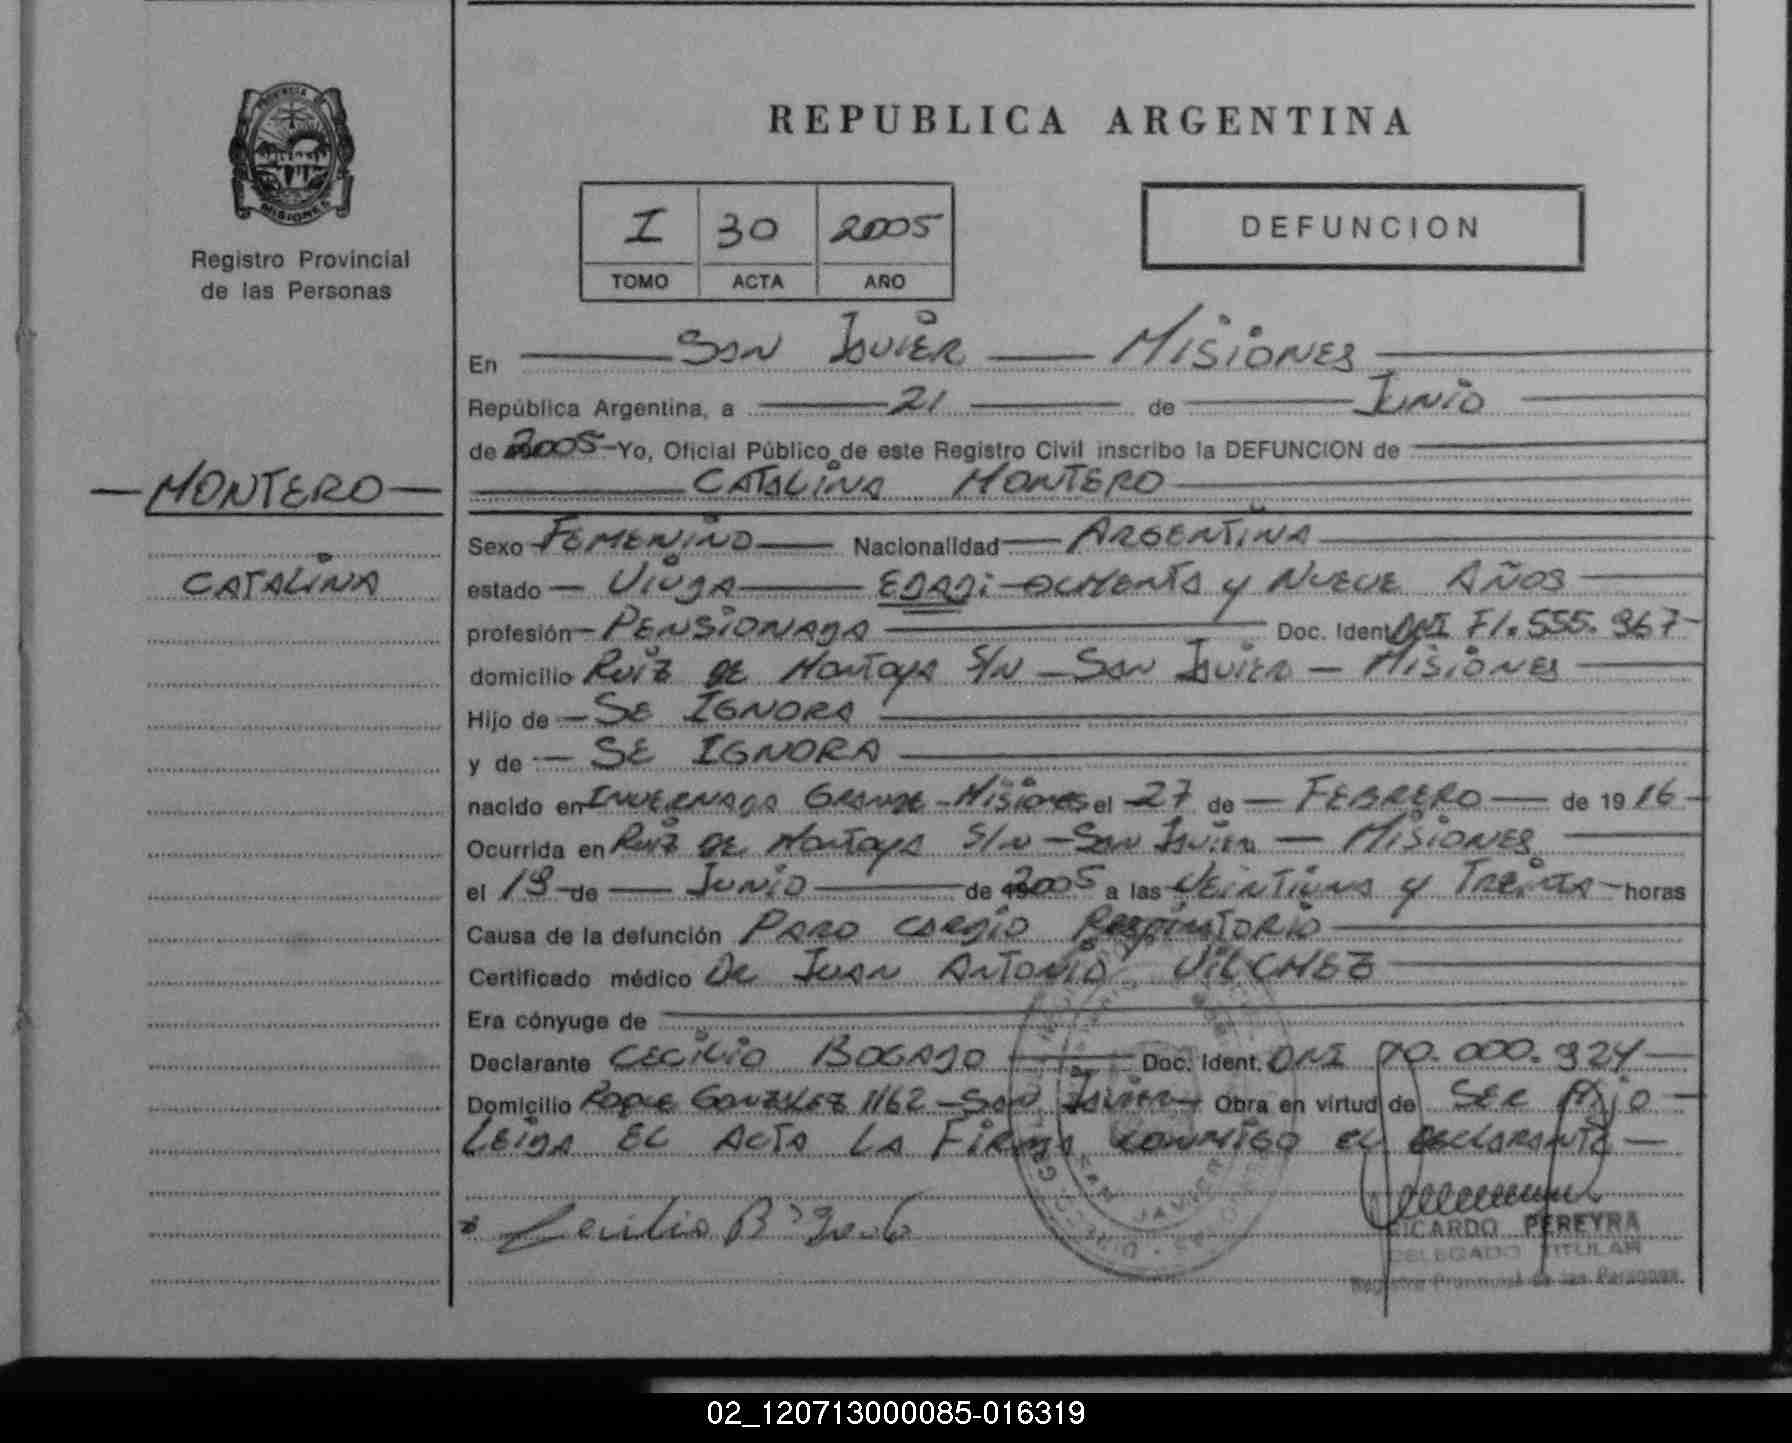 REPUBLICA ARGENTINA
PROVINCIA DE
MISIONES
Registro Provincial
de las Personas
I 30 2005
TOMO ACTA AÑO
DEFUNCION
En SAN JAVIER MISIONES
República Argentina, a 21 de JUNIO
de 2005 Yo, Oficial Público de este Registro Civil inscribo la DEFUNCION de
CATALINA MONTERO
MONTERO
CATALINA
Sexo FEMENINO Nacionalidad ARGENTINA
estado VIUDA EDAD: OCHENTA y NUEVE AÑOS
profesión PENSIONADA Doc. Ident. DNI F1.555.967
domicilio RUIZ DE MONTOYA S/N - SAN JAVIER - MISIONES
Hijo de SE IGNORA
y de SE IGNORA
nacido en INVERNADA GRANDE - MISIONES el 27 de FEBRERO de 1916
Ocurrida en RUIZ DE MONTOYA S/N - SAN JAVIER - MISIONES
el 19 de JUNIO de 2005 a las VEINTIUNA y TREINTA horas
Causa de la defunción PARO CARDIO RESPIRATORIO
Certificado médico DR JUAN ANTONIO VILCHEZ
Era cónyuge de
Declarante CECILIO BOGADO Doc. Ident. DNI 10.000.924
Domicilio ROQUE GONZALEZ 1162 - SAN JAVIER Obra en virtud de SER HIJO
LEIDA EL ACTA LA FIRMA CONMIGO EL DECLARANTE
Cecilio Bogado
SAN JAVIER
RICARDO PEREYRA
DELEGADO TITULAR
Registro Provincial de las Personas
02_120713000085-016319